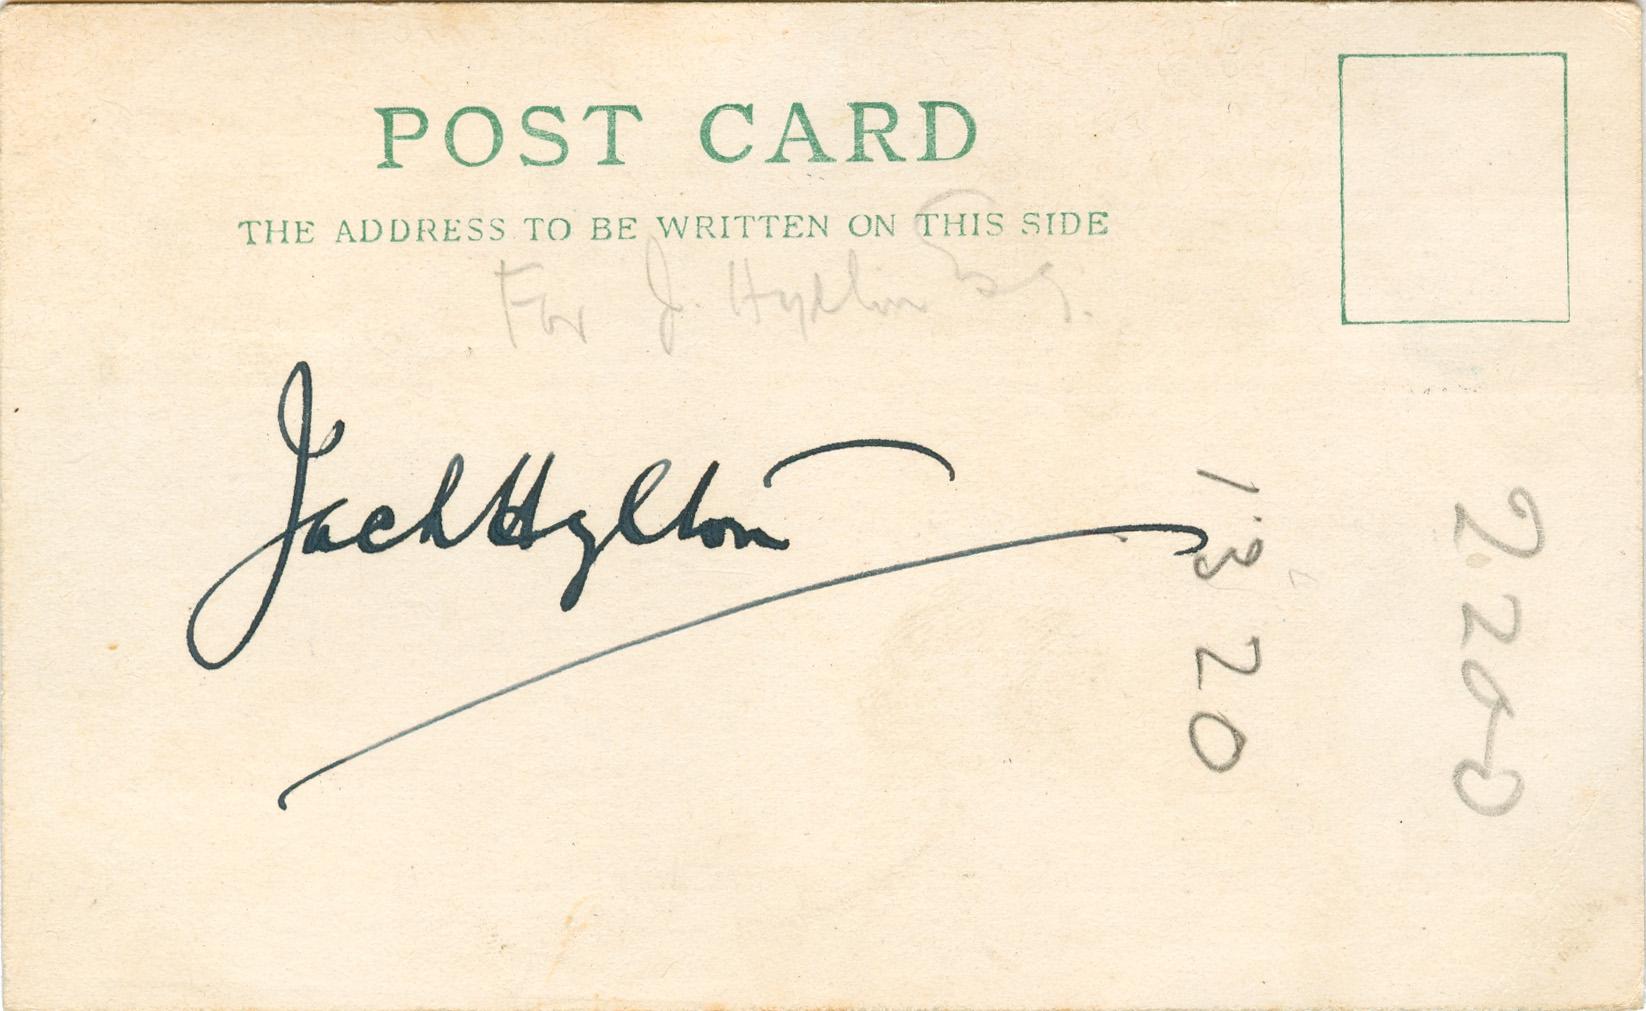 POST CARD
THE ADDRESS TO BE WRITTEN ON THIS SIDE
For J. Hylton Esq.
Jack Hylton
13 20
2.200